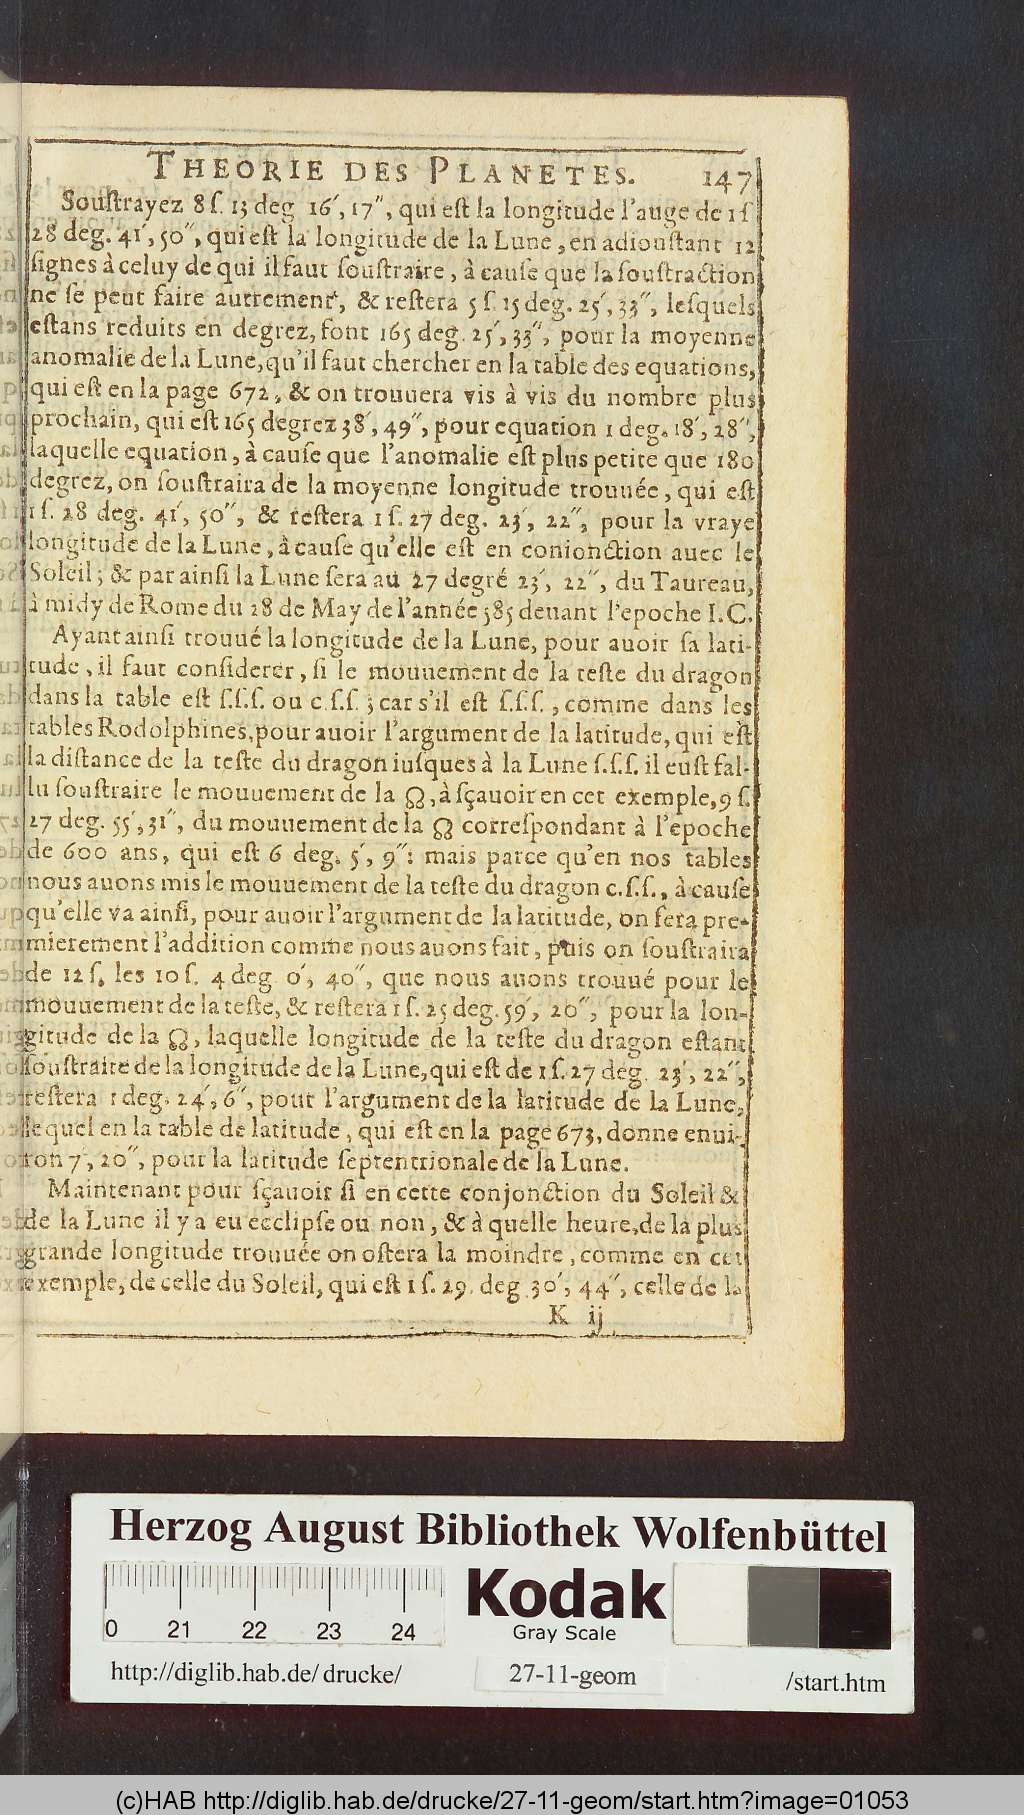 THEORIE DES PLANETES. 147
Souſtrayez 8 ſ. 13 deg 16′, 17″, qui eſt la longitude l'auge de 1 ſ
28 deg. 41′, 50″, qui eſt la longitude de la Lune, en adiouſtant 12
ſignes à celuy de qui il faut ſouſtraire, à cauſe que la ſouſtraction
ne ſe peut faire autrement, & reſtera 5 ſ. 15 deg. 25′, 33″, leſquels
eſtans reduits en degrez, font 165 deg. 25′, 33″, pour la moyenne
anomalie de la Lune, qu'il faut chercher en la table des equations,
qui eſt en la page 672, & on trouuera vis à vis du nombre plus
prochain, qui eſt 165 degrez 38′, 49″, pour equation 1 deg. 18′, 28″,
laquelle equation, à cauſe que l'anomalie eſt plus petite que 180
degrez, on ſouſtraira de la moyenne longitude trouuée, qui eſt
1 ſ. 28 deg. 41′, 50″, & reſtera 1 ſ. 27 deg. 23′, 22″, pour la vraye
longitude de la Lune, à cauſe qu'elle eſt en conionction auec le
Soleil; & par ainſi la Lune ſera au 27 degré 23′, 22″, du Taureau,
à midy de Rome du 28 de May de l'année 585 deuant l'epoche I. C.
Ayant ainſi trouué la longitude de la Lune, pour auoir ſa lati-
tude, il faut conſiderer, ſi le mouuement de la teſte du dragon
dans la table eſt ſ.ſ.ſ. ou c.ſ.ſ; car s'il eſt ſ.ſ.ſ., comme dans les
tables Rodolphines, pour auoir l'argument de la latitude, qui eſt
la diſtance de la teſte du dragon iuſques à la Lune ſ.ſ.ſ. il euſt fal-
lu ſouſtraire le mouuement de la ☊, à ſçauoir en cet exemple, 9 ſ.
27 deg. 55′, 31″, du mouuement de la ☊ correſpondant à l'epoche
de 600 ans, qui eſt 6 deg. 5′, 9″: mais parce qu'en nos tables
nous auons mis le mouuement de la teſte du dragon c.ſ.ſ., à cauſe
qu'elle va ainſi, pour auoir l'argument de la latitude, on fera pre-
mierement l'addition comme nous auons fait, puis on ſouſtraira
de 12 ſ. les 10 ſ. 4 deg 0′, 40″, que nous auons trouué pour le
mouuement de la teſte, & reſtera 1 ſ. 25 deg. 59′, 20″, pour la lon-
gitude de la ☊, laquelle longitude de la teſte du dragon eſtant
ſouſtraite de la longitude de la Lune, qui eſt de 1 ſ. 27 deg. 23′, 22″,
reſtera 1 deg. 24′, 6″, pour l'argument de la latitude de la Lune,
lequel en la table de latitude, qui eſt en la page 673, donne enui-
ron 7′, 20″, pour la latitude ſeptentrionale de la Lune.
Maintenant pour ſçauoir ſi en cette conjonction du Soleil &
de la Lune il y a eu ecclipſe ou non, & à quelle heure, de la plus
grande longitude trouuée on oſtera la moindre, comme en cet
exemple, de celle du Soleil, qui eſt 1 ſ. 29. deg 30′, 44″, celle de la
K ij
Herzog August Bibliothek Wolfenbüttel
0 21 22 23 24
Kodak
Gray Scale
http://diglib.hab.de/ drucke/ 27-11-geom /start.htm
(c)HAB http://diglib.hab.de/drucke/27-11-geom/start.htm?image=01053